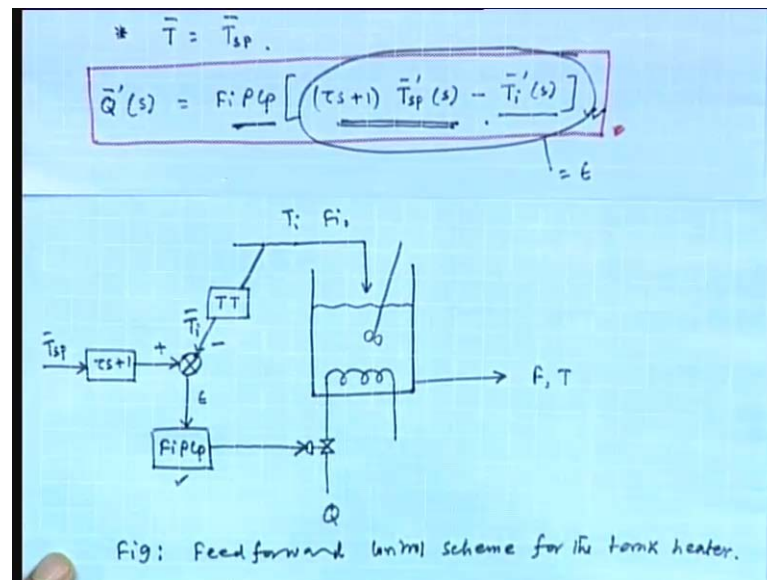 * T̄ = T̄sp.
Q̄'(s) = Fi ρ Cp [ (τs+1) T̄'sp(s) - T̄i'(s) ]
= ε
Ti Fi,
TT
T̄i
T̄sp
τs+1
+
-
ε
Fi ρ Cp
F, T
Q
Fig: Feedforward control scheme for the tank heater.